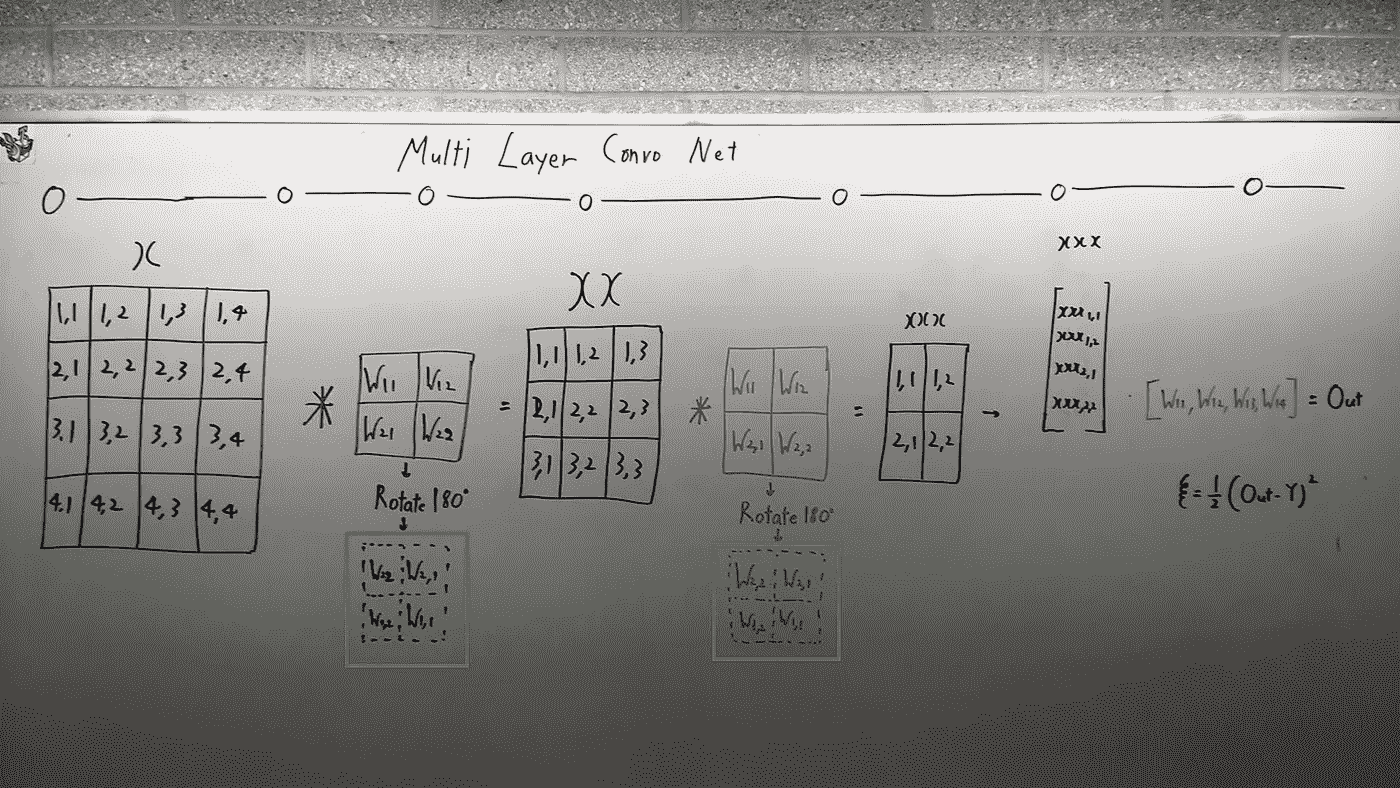 Multi Layer Convo Net
x
1,1 1,2 1,3 1,4
2,1 2,2 2,3 2,4
3,1 3,2 3,3 3,4
4,1 4,2 4,3 4,4
*
W11 W12
W21 W22
↓
Rotate 180°
↓
W22 W2,1
W1,2 W1,1
=
XX
1,1 1,2 1,3
2,1 2,2 2,3
3,1 3,2 3,3
*
W11 W12
W2,1 W2,2
↓
Rotate 180°
↓
W2,2 W2,1
W1,2 W1,1
=
xxx
1,1 1,2
2,1 2,2
→
xxx
xxx1,1
xxx1,2
xxx2,1
xxx2,2
· [W11, W12, W13, W14] = Out
ξ = 1/2 (Out - Y)²